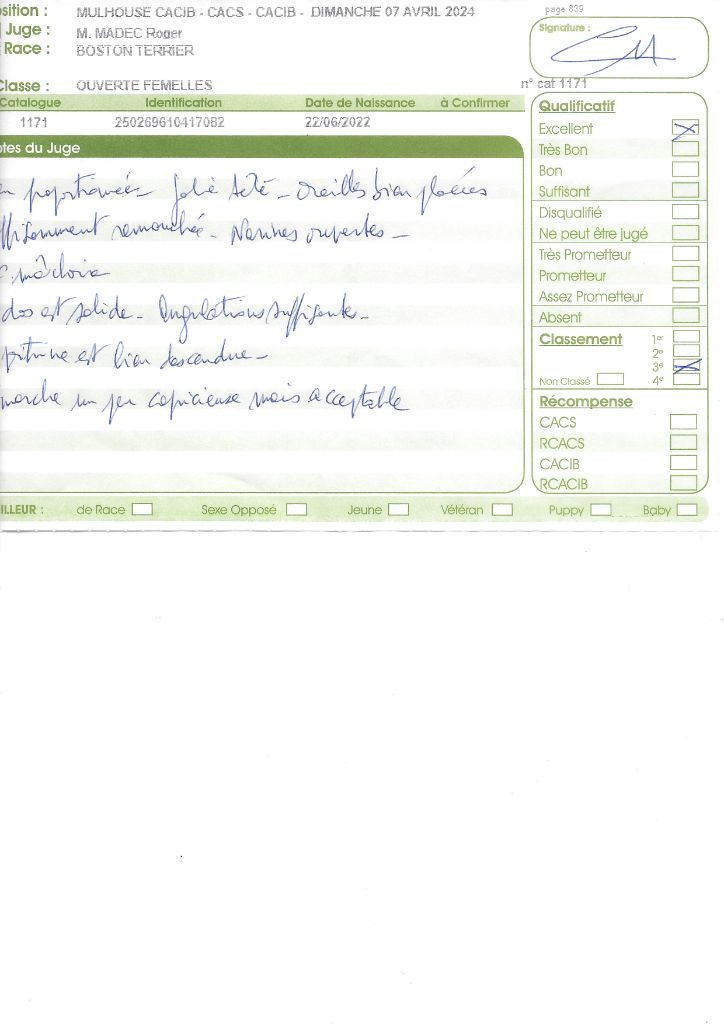 osition : MULHOUSE CACIB - CACS - CACIB - DIMANCHE 07 AVRIL 2024
page 839
Juge : M. MADEC Roger
Signature :
Race : BOSTON TERRIER
Classe : OUVERTE FEMELLES
n° cat 1171
Catalogue Identification Date de Naissance à Confirmer
1171 250269610417082 22/06/2022
otes du Juge
n proportionnée - Jolie tête - Oreilles bien placées
ffisamment remouchée - Narines ouvertes -
mâchoire
dos est solide - Angulations suffisantes -
oitrine est bien descendue -
marche un peu capricieuse mais acceptable
Qualificatif
Excellent
Très Bon
Bon
Suffisant
Disqualifié
Ne peut être jugé
Très Prometteur
Prometteur
Assez Prometteur
Absent
Classement 1er
2e
3e
Non Classé 4e
Récompense
CACS
RCACS
CACIB
RCACIB
ILLEUR : de Race Sexe Opposé Jeune Vétéran Puppy Baby